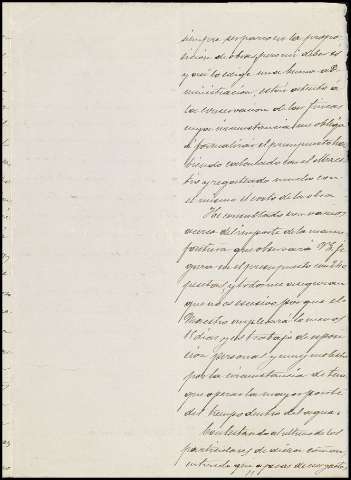 siempre se parece en la propo-
sición de obras, pero mi deber es
y así lo exige una buena ad-
ministración, estar atento á
la conservacion de las fincas
cuya circunstancia me obliga
á formalizar el presupuesto ha-
biendo calculado con el Maes-
tro y regateado mucho con
el mismo el costo de la obra.
He consultado con varios,
acerca del importe de la manu-
factura que observará V.E. fi-
gura en el presupuesto en 240
pesetas, y todos me aseguran
que no es escesivo por que el
Maestro empleará lo menos
11 dias y es trabajo de esposi-
cion personal y muy molesto
por la circunstancia de tener
que operar la mayor parte
del tiempo dentro del agua.
Contestando al último de los
particulares de